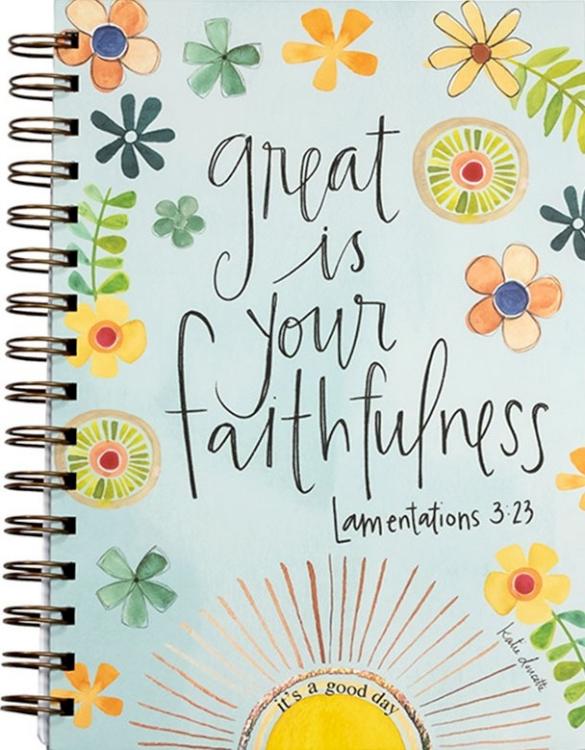 great
is
your
faithfulness
Lamentations 3:23
Katie Doucette
it's a good day